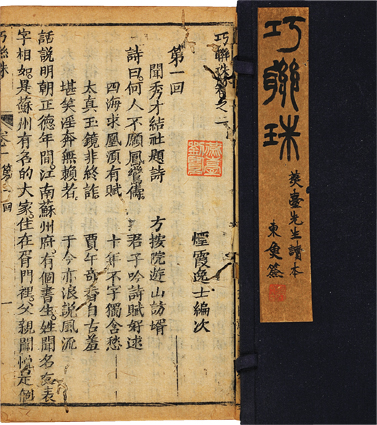 巧聯珠
臺先生讀本
東魚簽
巧聯珠卷之一
煙霞逸士編次
第一回
聞秀才結社題詩 方按院遊山訪壻
詩曰何人不願鳳鸞儔 君子吟詩賦好逑
四海求凰須有賦 十年不字獨含愁
太真玉鏡非終詐 賈午奇香自古羞
堪笑淫奔無賴者 于今亦浪說風流
話說明朝正德年間江南蘇州府有個書生姓聞名友表
字相如是蘇州有名的大家住在胥門裡父親聞悅是個
巧聯珠 卷一 第一回 一